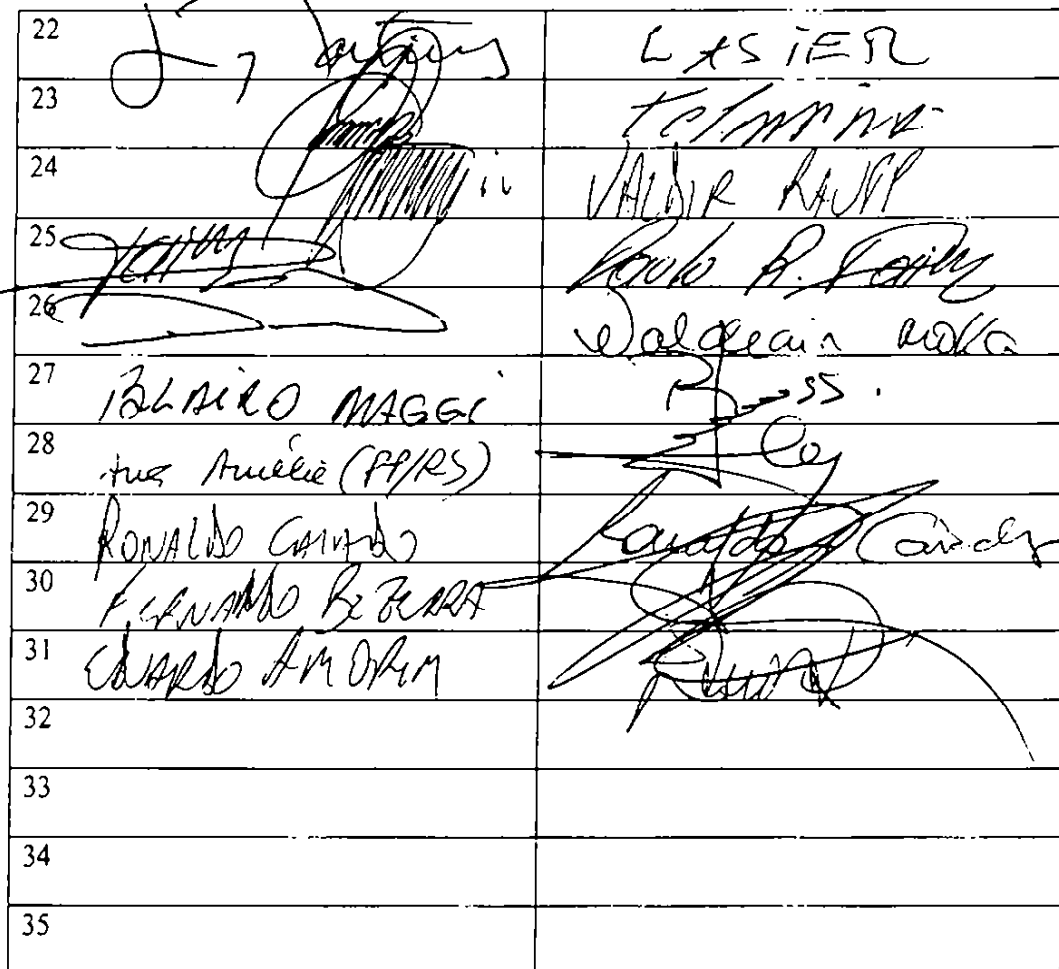 22 LASIER
23 Telmário
24 VALDIR RAUPP
25 Paim Paulo R. Paim
26 Waldemir Moka
27 BLAIRO MAGGI
28 Ana Amélia (PP/RS)
29 RONALDO CAIADO Ronaldo Caiado
30 FERNANDO BEZERRA
31 EDUARDO AMORIM
32
33
34
35